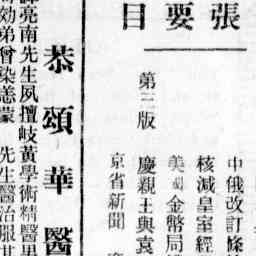 張要目
中俄改訂條
核減皇室經
美 金幣局
第 版 慶親王與袁
京省新聞
恭頌華醫
亮南先生夙擅岐黃學術精醫
効弟曾染恙蒙 先生醫治服